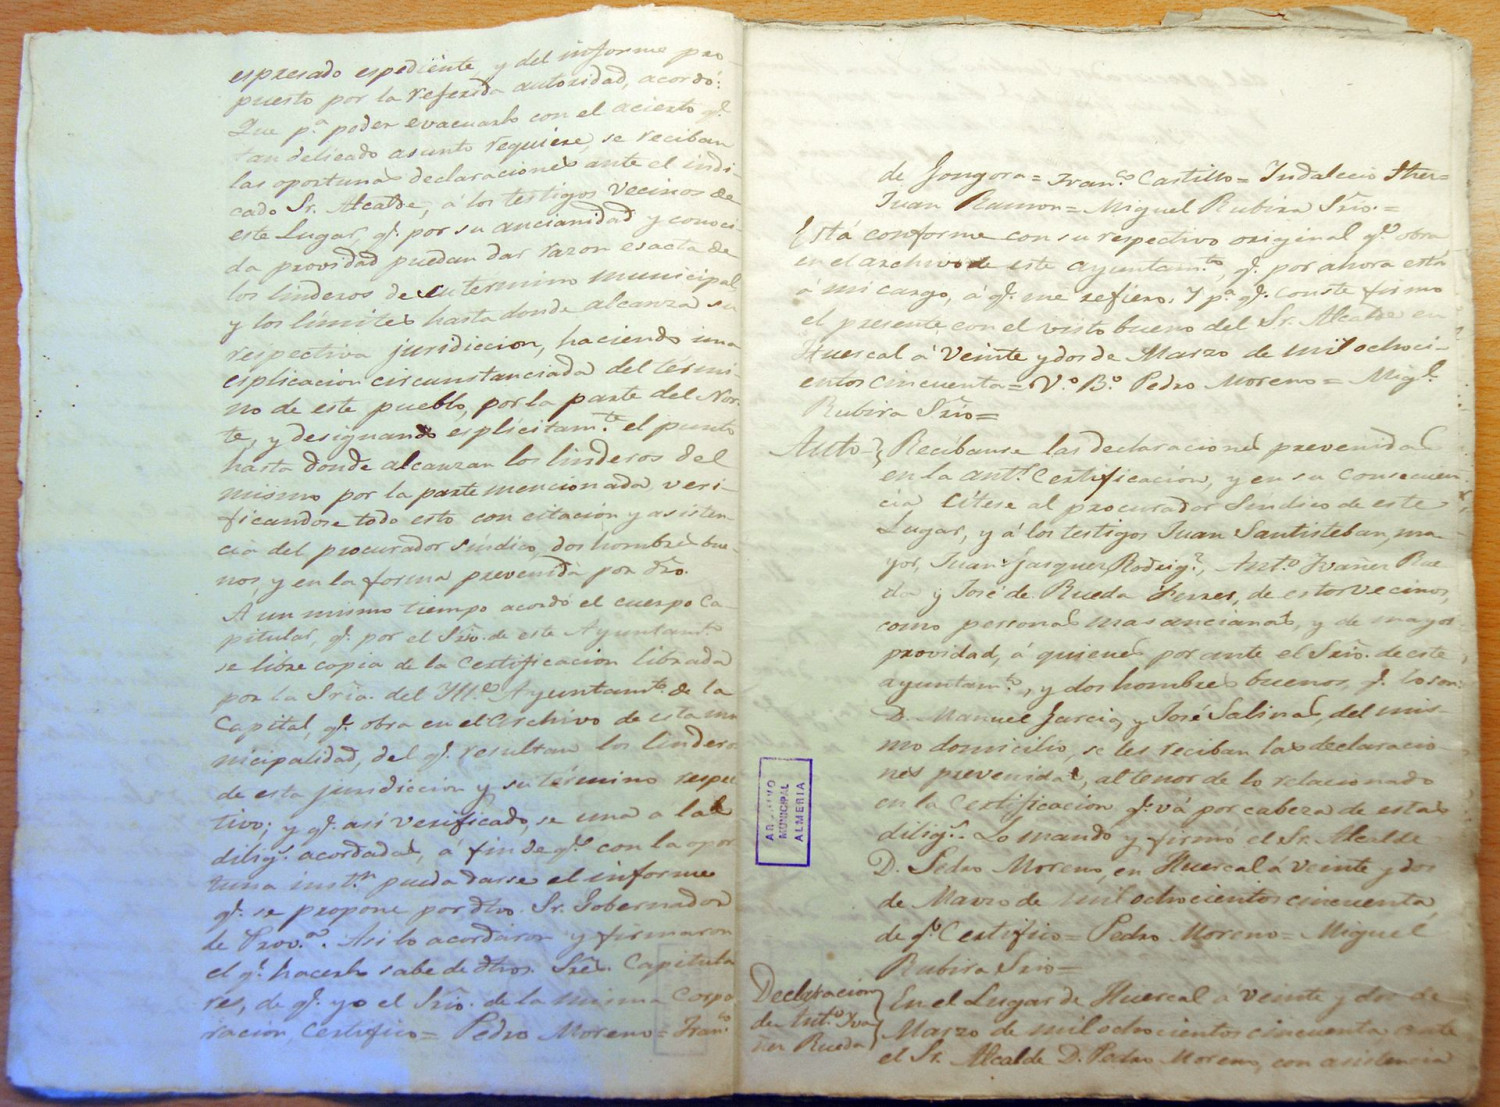 espresado espediente y del informe pro-
puesto por la referida autoridad, acordó:
Que pª poder evacuarlo con el acierto q.e
tan delicado asunto requiere, se reciban
las oportunas declaraciones ante el indi-
cado Sr. Alcalde, á los testigos vecinos de
este Lugar, q.e por su ancianidad y conoci-
da providad puedan dar razon esacta de
los linderos de su termino municipal
y los límites hasta donde alcanza su
respectiva juridiccion, haciendo una
esplicacion circunstanciada del térmi-
no de este pueblo, por la parte del Nor-
te, y designando esplicitam.te el punto
hasta donde alcanzan los linderos del
mismo por la parte mencionada, veri-
ficandose todo esto con citacion y asisten-
cia del procurador Síndico, dos hombres bue-
nos, y en la forma prevenida por dro.
A un mismo tiempo acordó el cuerpo ca-
pitular, q.e por el Srio. de este Ayuntam.to
se libre copia de la Certificacion librada
por la Sria. del Yll.e Ayuntam.to de la
Capital, q.e obra en el Archivo de esta mu
nicipalidad, del q.e resultan los linderos
de esta juridiccion y su término respec
tivo; y q.e asi verificado, se una a las
dilig.s acordadas, á fin de q.e con la opor
tuna inst.n pueda darse el informe
q.e se propone por dho. Sr. Gobernador
de Prov.a. Asi lo acordaron y firmaron
el q.e hacerlo sabe de dhos. Sres. Capitula
res, de q.e yo el Srio. de la misma Corpo
racion, Certifico= Pedro Moreno= Fran.co
de Gongora= Fran.co Castillo= Indalecio Ther=
Juan Ramon= Miguel Rubira Srio.=
Está conforme con su respectivo original q.e obra
en el archivo de este ayuntam.to, q.e por ahora está
á mi cargo, á q.e me refiero. Y p.a q.e conste firmo
el presente con el visto bueno del Sr. Alcalde en
Huercal á veinte y dos de Marzo de mil ochoci-
entos cincuenta= V.o B.o Pedro Moreno= Mig.l
Rubira Srio=
Auto= Recíbanse las declaraciones prevenidas
en la ant.r Certificacion, y en su consecuen
cia cítese al procurador Síndico de este
Lugar, y á los testigos Juan Santisteban, ma-
yor, Juan Rodrig.z, Ant.o Ivañez Rue
da y José de Rueda, de estos vecinos,
como personas mas ancianas, y de mayor
providad, á quienes por ante el Srio. de este
ayuntam.to, y dos hombres buenos, q.e lo son
D. Manuel Garcia, y José Salinas, del mis-
mo domicilio, se les reciban las declaracio
nes prevenidas, al tenor de lo relacionado
en la Certificacion q.e vá por cabeza de estas
dilig.s. Lo mandó y firmó el Sr. Alcalde
D. Pedro Moreno, en Huercal á veinte y dos
de Marzo de mil ochocientos cincuenta,
de q.e Certifico= Pedro Moreno= Miguel
Rubira Srio=
Declaracion
de Ant.o Iva
ñez Rueda
En el Lugar de Huercal á veinte y dos de
Marzo de mil ochocientos cincuenta, ante
el Sr. Alcalde D. Pedro Moreno, con asistencia
ARCHIVO
MUNICIPAL
ALMERIA